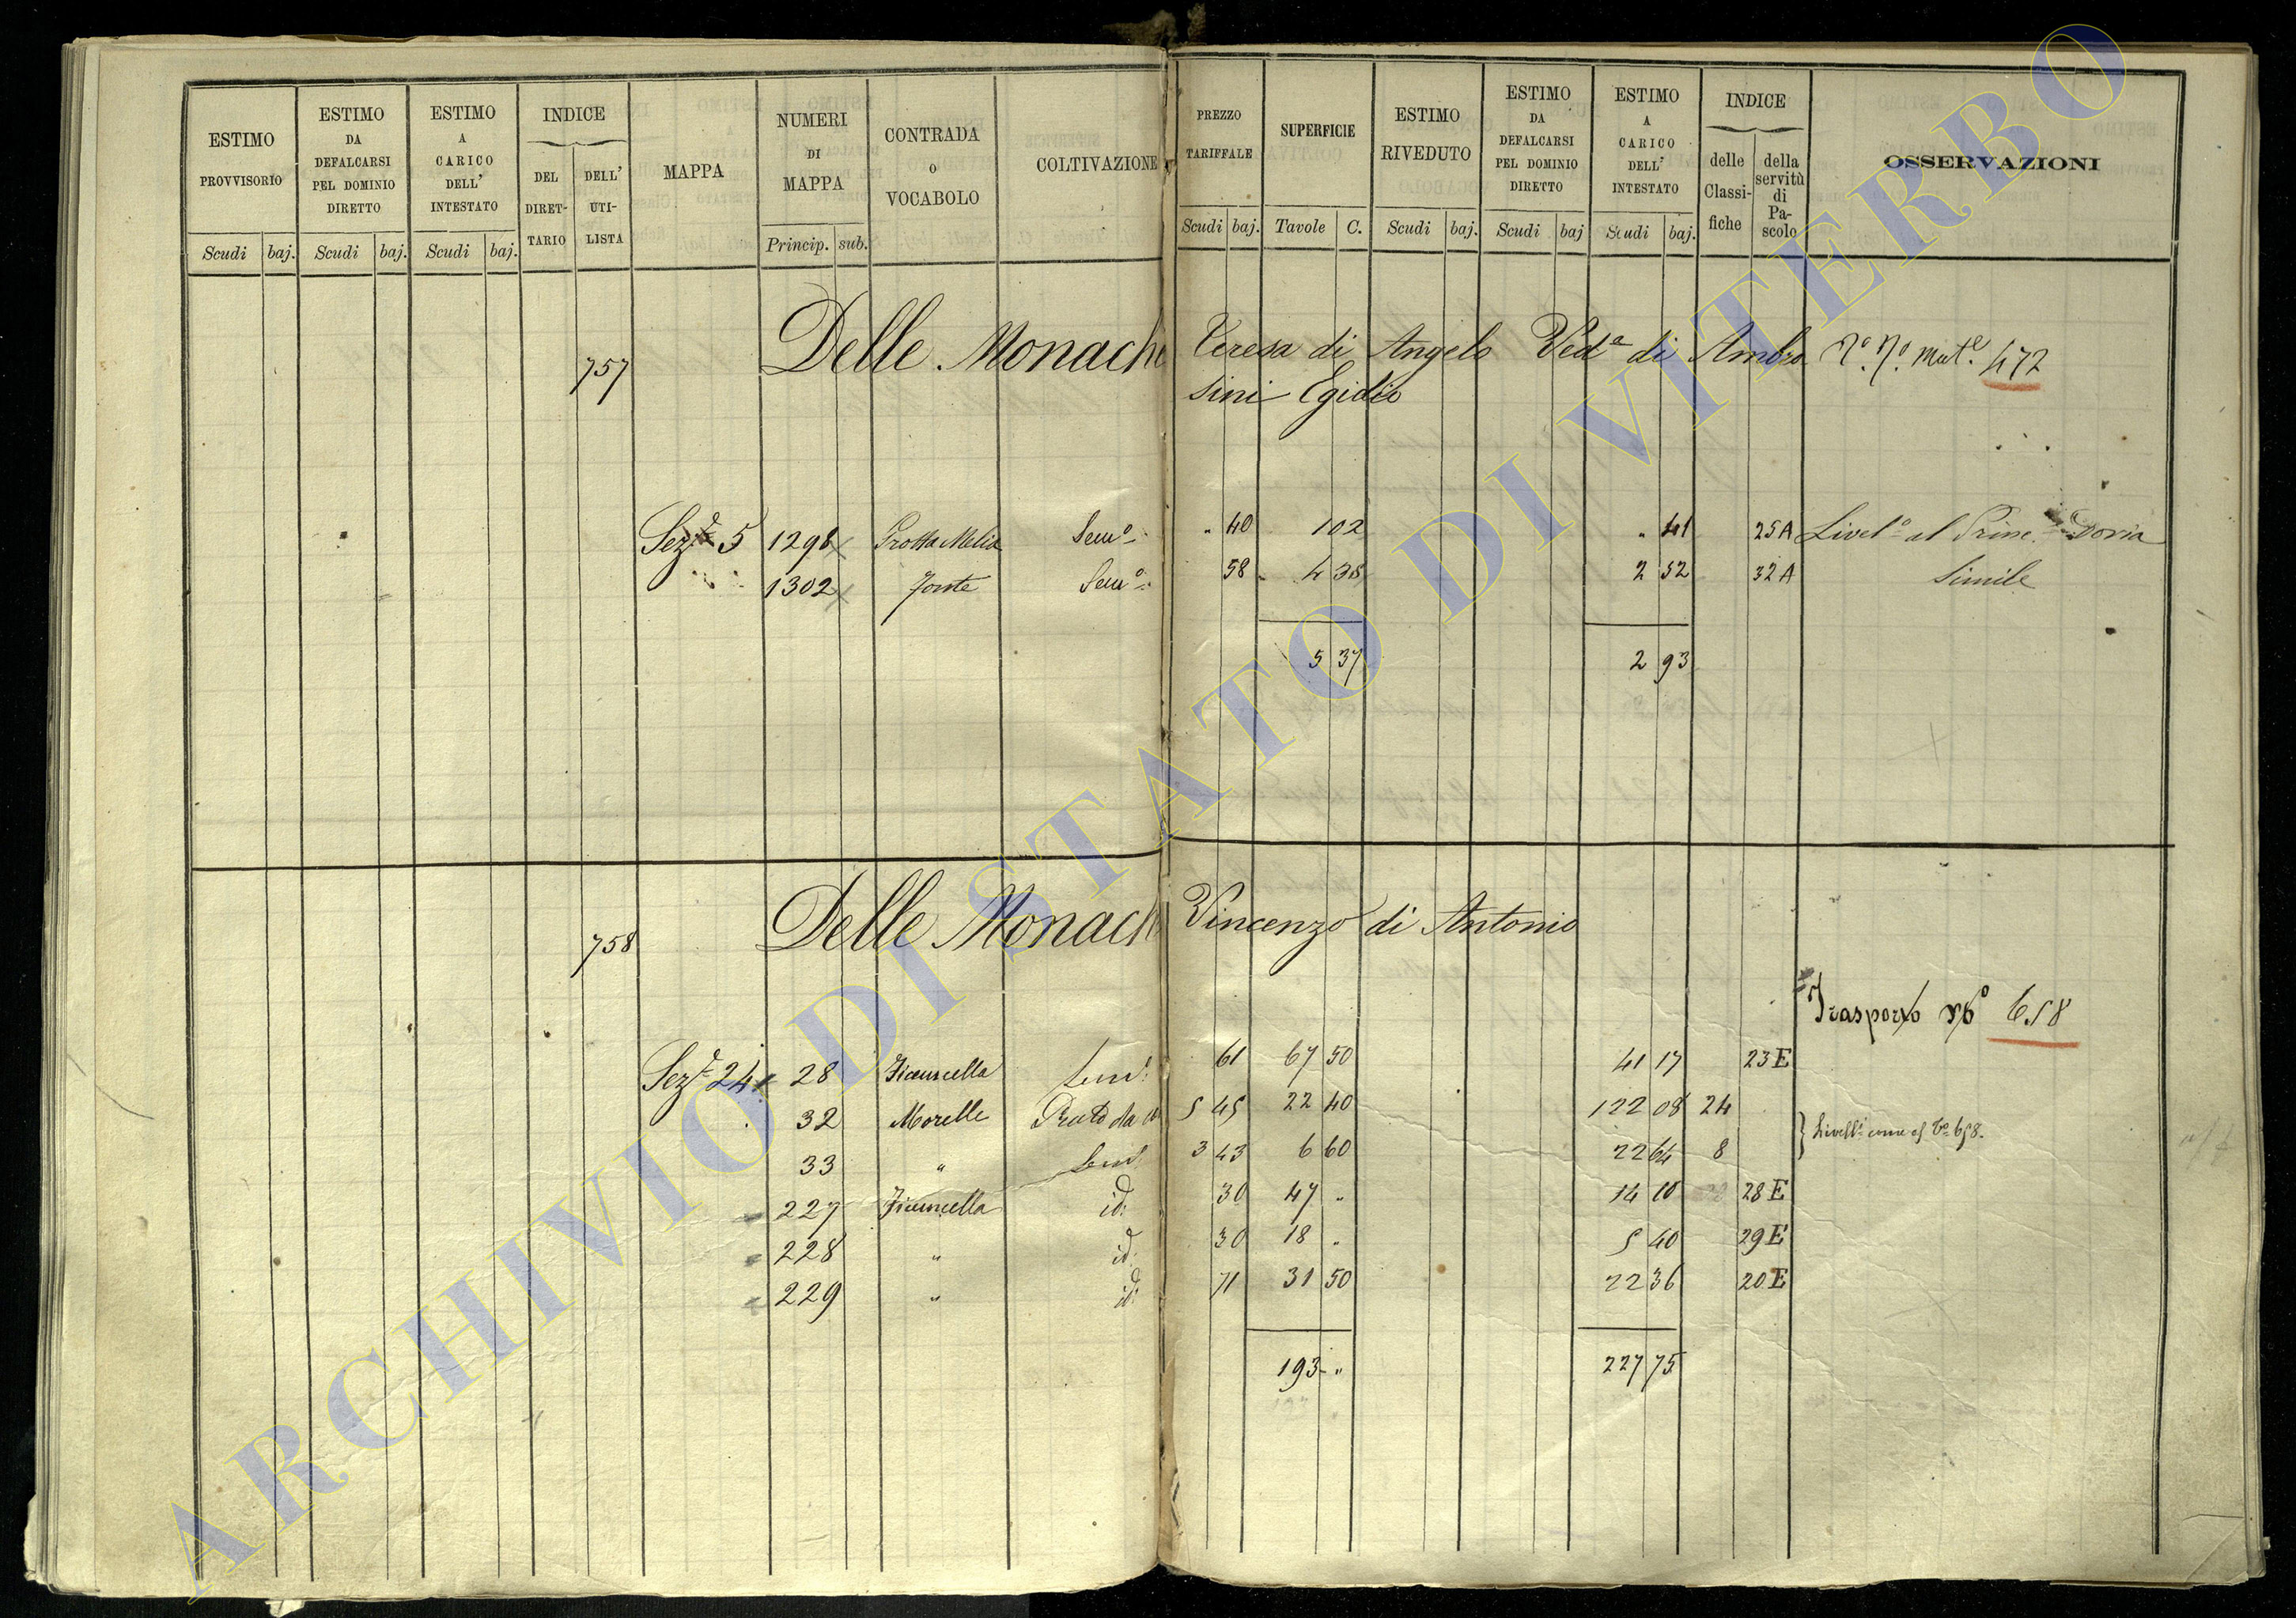 ESTIMO PROVVISORIO
ESTIMO DA DEFALCARSI PEL DOMINIO DIRETTO
ESTIMO A CARICO DELL' INTESTATO
INDICE
DEL DIRET-TARIO
DELL' UTI-LISTA
MAPPA
NUMERI DI MAPPA
CONTRADA o VOCABOLO
COLTIVAZIONE
PREZZO TARIFFALE
SUPERFICIE
ESTIMO RIVEDUTO
ESTIMO DA DEFALCARSI PEL DOMINIO DIRETTO
ESTIMO A CARICO DELL' INTESTATO
INDICE
delle Classi-fiche
della servitù di Pa-scolo
OSSERVAZIONI
Scudi baj. Scudi baj. Scudi baj. Princip. sub. Scudi baj. Tavole C. Scudi baj. Scudi baj Scudi baj.
757 Delle Monache Teresa di Angelo Ved.a di Ambro 472
sini Egidio
Sez.e 5 1298 Grotta Melia Sem.o " 40 1 02 " 41 25A Livel.o al Princ. Doria
1302 Fonte Sem.o 58 4 35 2 52 32A Simile
5 37 2 93
758 Delle Monach Vincenzo di Antonio
Trasporto 658
Sez.e 24 28 Ficuncella Sem. 61 67 50 41 17 23E
32 Morelle Prato da 5 45 22 40 122 08 24
33 " Sem. 3 43 6 60 22 64 8 Livell. come al 658.
227 Ficuncella id. 30 47 " 14 10 28E
228 " id. 30 18 " 5 40 29E
229 " id. 71 31 50 22 36 20E
193 " 227 75
ARCHIVIO DI STATO DI VITERBO